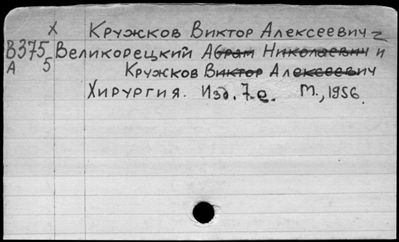 X Кружков Виктор Алексеевич
В375 Великорецкий Абрам Николаевич и
А 5 Кружков Виктор Алексеевич
Хирургия. Изд. 7-е. М., 1956